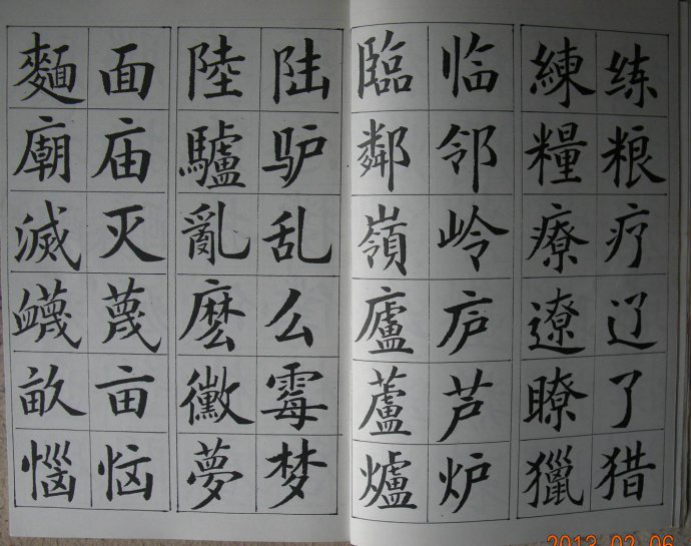 麵 面 陸 陆 臨 临 練 练
廟 庙 驢 驴 鄰 邻 糧 粮
滅 灭 亂 乱 嶺 岭 療 疗
衊 蔑 麽 么 廬 庐 遼 辽
畝 亩 黴 霉 蘆 芦 瞭 了
惱 恼 夢 梦 爐 炉 獵 猎
2013 02 06